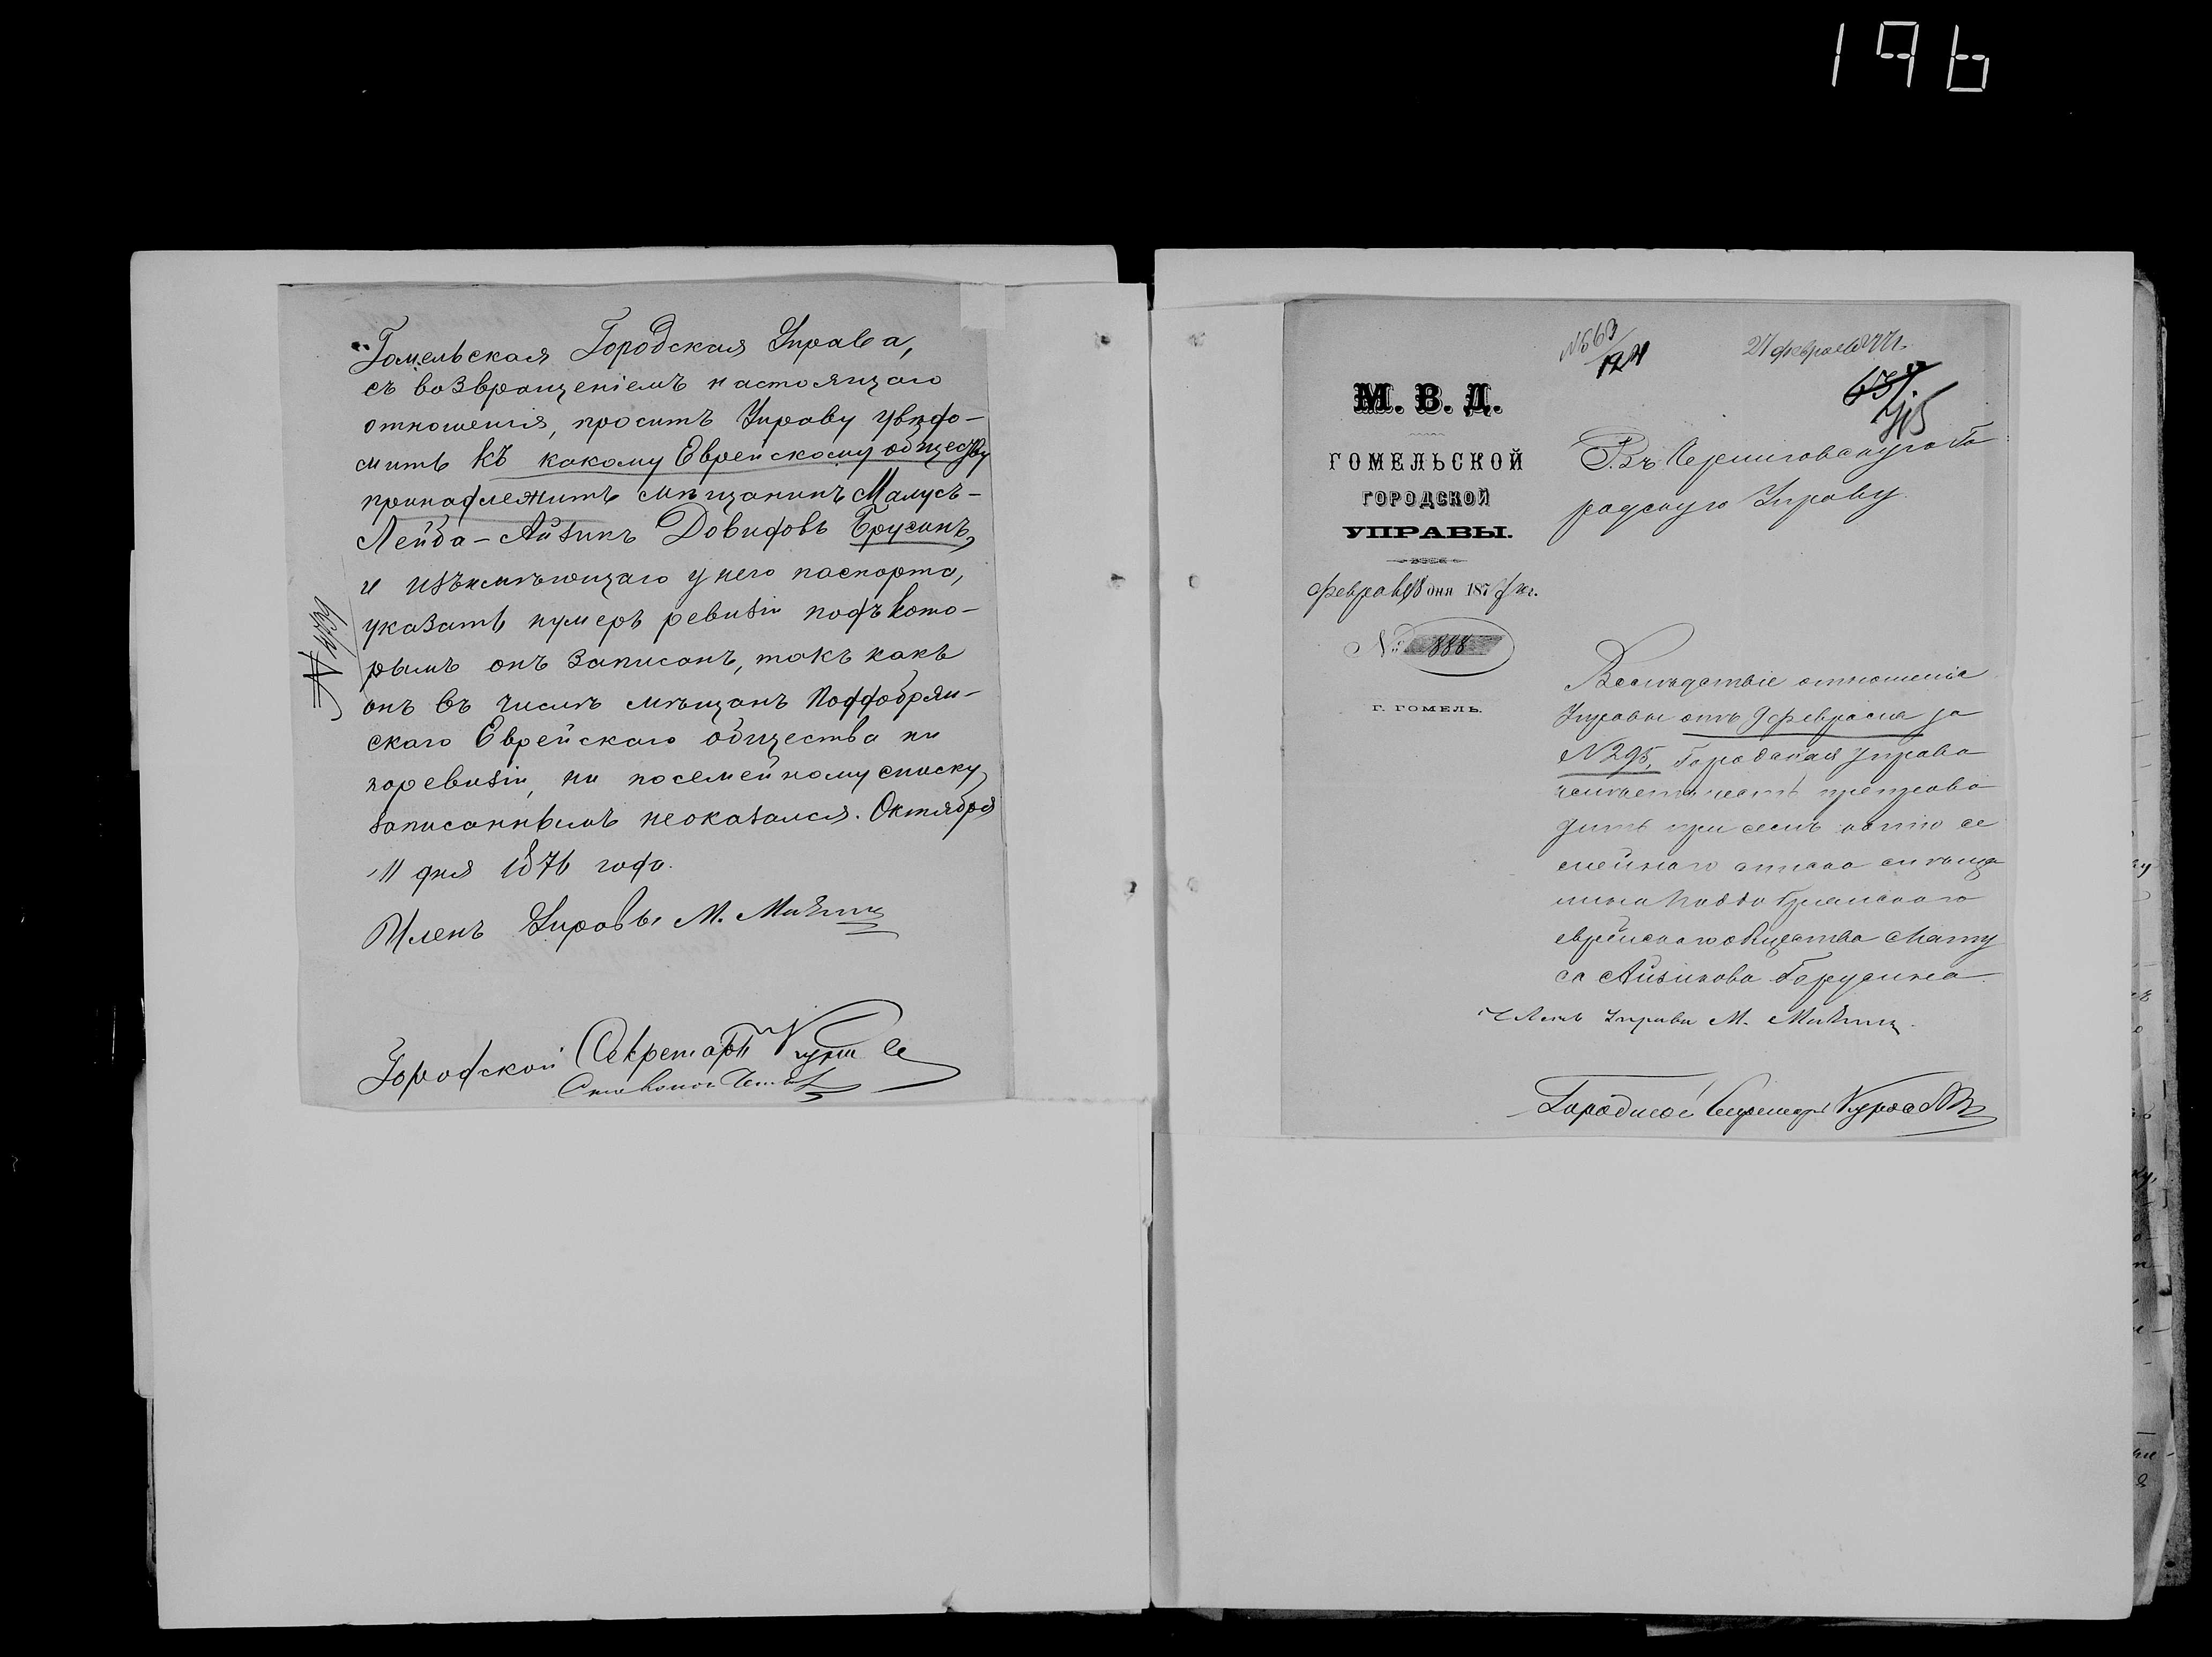 196
Гомельская Городская Управа,
съ возвращеніемъ настоящаго
отношенія, проситъ Управу увѣдо-
мить къ какому Еврейскому обществу
принадлежитъ мѣщанинъ
Лейба-Айзикъ Довидовъ Брусинъ,
и изъ имѣющаго у него паспорта,
указать нумеръ ревизіи подъ кото-
рымъ онъ записанъ, такъ какъ
онъ въ числѣ мѣщанъ Поддобрян-
скаго Еврейскаго общества ни
поревизіи, ни посемейному списку
записаннымъ неоказался. Октября
11 дня 1876 года.
Членъ Управы М.
Городской Секретарь
№ 1739
М. В. Д.
ГОМЕЛЬСКОЙ
ГОРОДСКОЙ
УПРАВЫ.
Февраля 18 дня 187
№ 888
Г. ГОМЕЛЬ.
21 февраля
Въ Черниговскую Го
родскую Управу
Вслѣдствіе отношенія
Управы отъ 9 февраля за
№ 295, Городская Управа
имѣетъ честь препрово
дить при семъ копію се
мейнаго списка мѣща
нина Поддобрянскаго
еврейскаго общества Мату
са Айзикова Борусина
Членъ Управы М.
Городской Секретарь